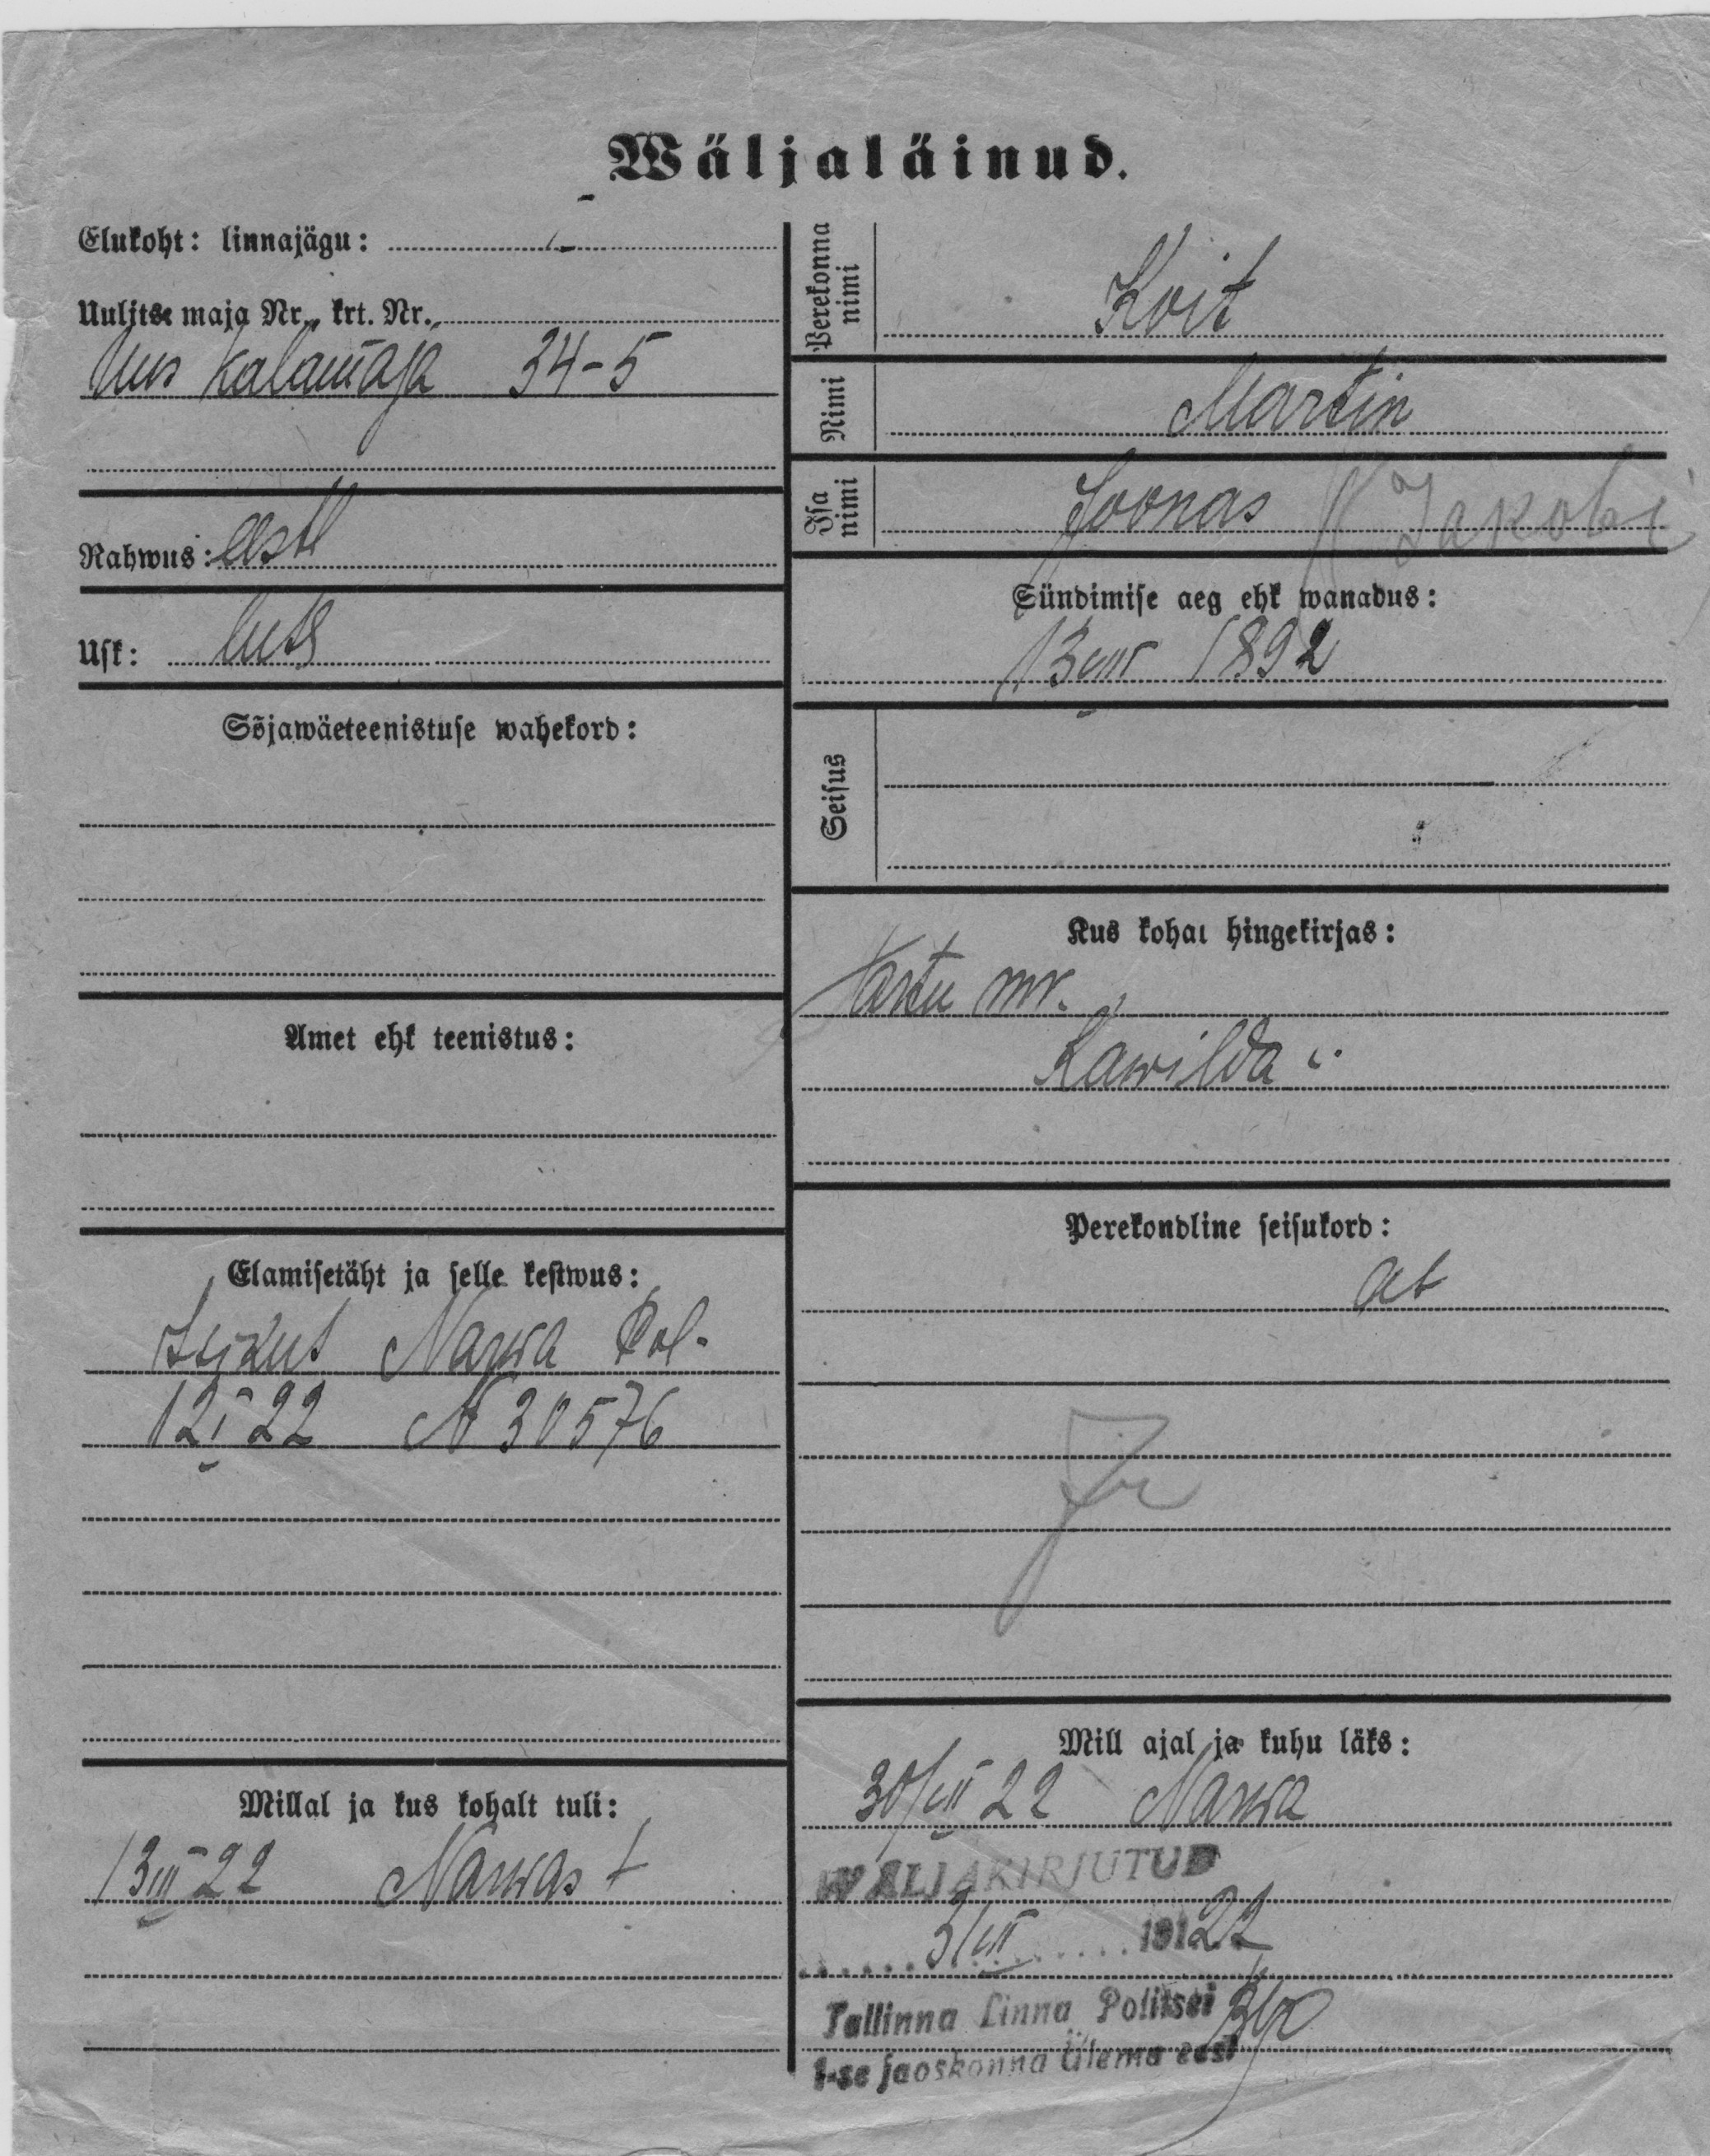 Wäljaläinud.
Elukoht: linnajägu:
Uulits maja Nr., krt. Nr.
Uus Kalamaja 34-5
Rahwus: eestl
Usk: luts
Sõjawäeteenistuse wahekord:
Amet ehk teenistus:
Elamisetäht ja selle kestwus:
Isikut Narwa Pol.
12 I 22 N 30576
Millal ja kus kohalt tuli:
13 III 22 Narwast
Perekonna nimi
Koit
Nimi
Martin
Isa nimi
Joonas Jakobi
Sündimise aeg ehk wanadus:
1892
Seisus
Kus kohal hingekirjas:
Tartu mr.
Kawilda
Perekondline seisukord:
ab
Mill ajal ja kuhu läks:
30/III 22 Narwa
WÄLJAKIRJUTUD
191 22
Tallinna Linna Politsei
1-se jaoskonna Ülema eest